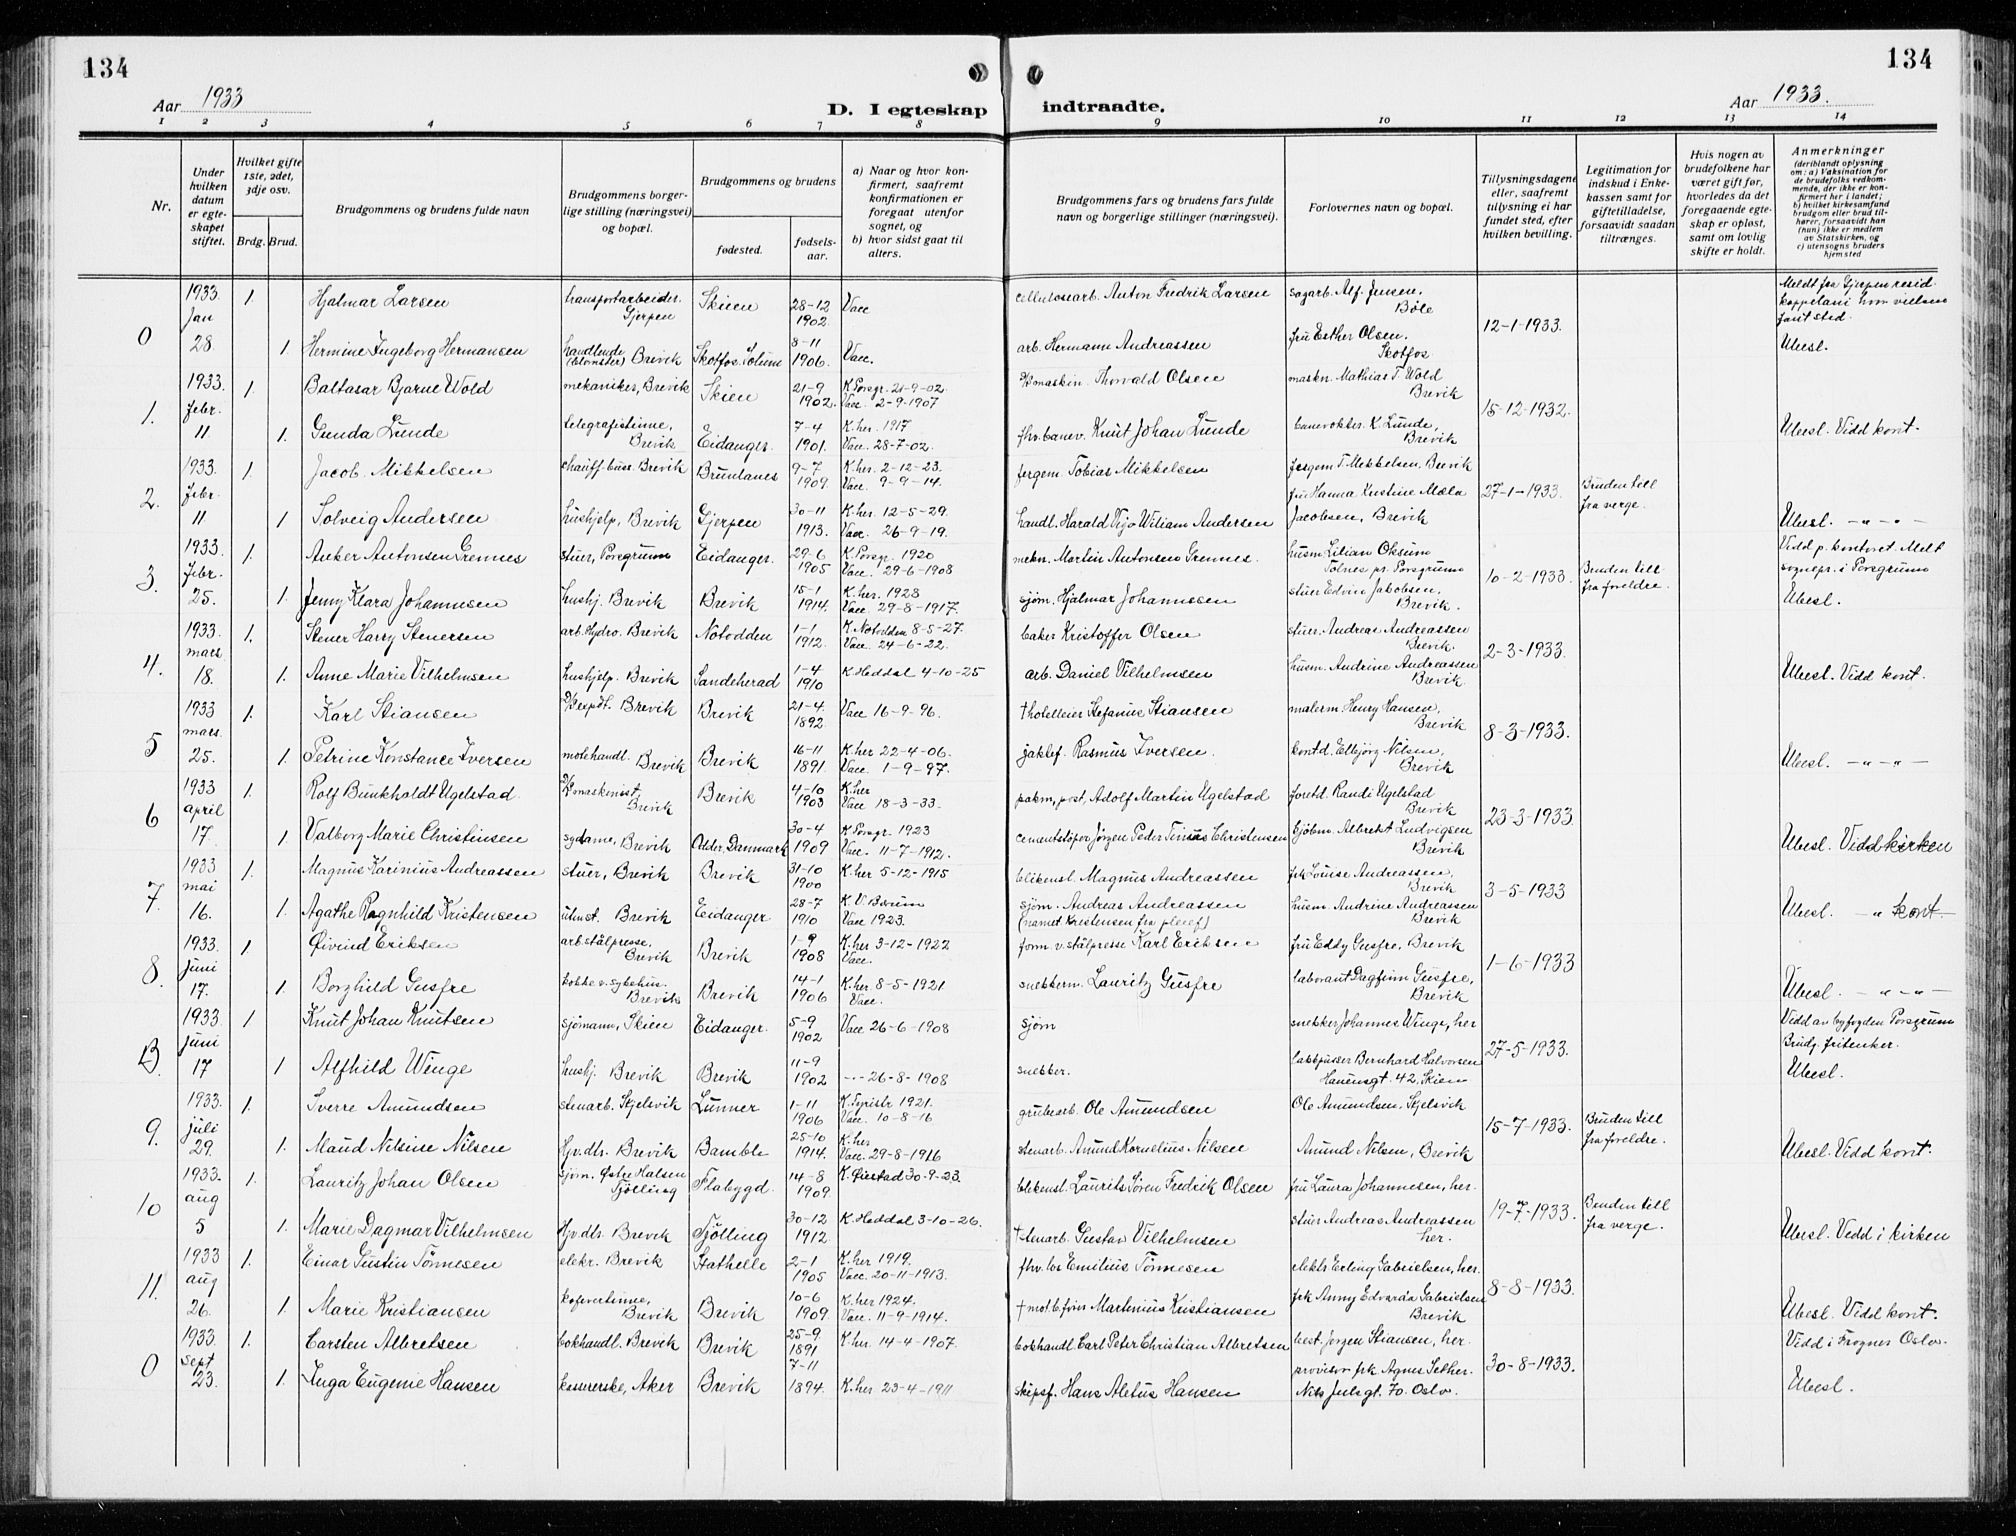 134
134
Aar 1933
D. I egteskap indtraadte.
Aar 1933.
1 2 3 4 5 6 7 8 9 10 11 12 13 14
Nr.
Under hvilken datum er egteskapet stiftet.
Hvilket gifte 1ste, 2det, 3dje osv.
Brdg. Brud.
Brudgommens og brudens fulde navn
Brudgommens borgerlige stilling (næringsvei) og bopæl.
Brudgommens og brudens
fødested.
fødselsaar.
a) Naar og hvor konfirmert, saafremt konfirmationen er foregaat utenfor sognet, og
b) hvor sidst gaat til alters.
Brudgommens fars og brudens fars fulde navn og borgerlige stillinger (næringsvei).
Forlovernes navn og bopæl.
Tillysningsdagene eller, saafremt tillysning ei har fundet sted, efter hvilken bevilling.
Legitimation for indskud i Enkekassen samt for giftetilladelse, forsaavidt saadan tiltrænges.
Hvis nogen av brudefolkene har været gift før, hvorledes da det foregaaende egteskap er opløst, samt om lovlig skifte er holdt.
Anmerkninger
(deriblandt oplysning om: a) Vaksination for de brudefolks vedkommende, der ikke er konfirmert her i landet;
b) hvilket kirkesamfund brudgom eller brud tilhører, forsaavidt han (hun) ikke er medlem av Statskirken, og
c) utensogns bruders hjemsted
0 1933 Jan 28 1. Hjalmar Larsen transportarbeider. Gjerpen Skien 28-12 1902. Vacc cellulosearb. Anton Fredrik Larsen sagarb. Alf. Jensen, Böle 12-1-1933. Meldt fra Gjerpen resid. kappelani hvor vielsen fant sted.
1. Hermine Ingeborg Hermansen handlende (blomster) Brevik Skotfos, Solum 8-11 1906. Vacc. arb. Hermann Andreassen fru Esther Olsen. Skotfos Ubesl.
1. 1933. febr. 11 1. Baltasar Bjarne Wold mekaniker, Brevik Skien 21-9 1902. K. Porsgr. 21-9-02. Vacc. 2-9-1907 maskin. Thorvald Olsen maskn. Mathias T. Wold Brevik 15-12-1932.
1. Gunda Lunde telegrafistinne, Brevik Eidanger. 7-4 1901. K. her. 1917 Vacc. 28-7-02. fhv. banev. Knut Johan Lunde banevokter. K. Lunde, Brevik Ubesl. Vidd kont.
2. 1933. febr. 11 1 Jacob Mikkelsen chauff. buss. Brevik Brunlanes 9-7 1909. K. her. 2-12-23. Vacc. 9-9-14. fergem. Tobias Mikkelsen fergem T. Mikkelsen, Brevik 27-1-1933. Bruden till fra verge.
1 Solveig Andersen hushjelp, Brevik Gjerpen 30-11 1913. K. her. 12-5-29. Vacc. 26-9-19. handl. Harald Vigo Wiliam Andersen fru Hanna Kristine Mæla Jacobsen, Brevik Ubesl. -"-"-
3. 1933. febr. 25. 1. Anker Antonsen Grennes stuer, Porsgrunn Eidanger. 29-6 1905 K. Porsgr. 1920 Vacc. 29-6-1908 mekn. Martin Antonsen Grennes. husm. Lilian Oksum Tolnes pr. Porsgrunn 10-2-1933. Bruden till fra foreldre. Vidd p. kontoret. Melt sognepr. i Porsgrunn
1. Jenny Klara Johannesen hushj. Brevik Brevik 15-1 1914. K. her. 1928 Vacc. 29-8-1917. sjøm. Hjalmar Johannesen stuer Edvin Jakobsen, Brevik. Ubesl.
4. 1933. mars. 18. 1. Stener Harry Stenersen arb. Hydro. Brevik Notodden 1-1 1912. K. Notodden 8-5-27. Vacc. 24-6-22. baker Kristoffer Olsen stuer. Andreas Andreassen Brevik. 2-3-1933.
1. Anne Marie Vilhelmsen hushjelp. Brevik Sandeherad 1-4 1910 K. Heddal 4-10-25 arb. Daniel Vilhelmsen husm. Andrine Andreassen Brevik Ubesl. Vidd kont.
5 1933 mars. 25. 1. Karl Stiansen expdt. Brevik Brevik 21-4. 1892. Vacc 16-9-96. † hotelleier Stefanius Stiansen malerm. Henry Hansen, Brevik 8-3-1933.
1 Petrine Konstance Iversen motehandl. Brevik Brevik 16-11 1891. K. her 22-4-06. Vacc. 1-9-97. Rasmus Iversen. kontd. Ellbjørg Nilsen, Brevik Ubesl. -"-"-
6 1933 april 17 1. Rolf Bunkholdt Ugelstad. maskinist, Brevik Brevik 4-10 1903 K. her Vacc 18-3-33. pakm, post, Adolf Martin Ugelstad foretd. Randi Ugelstad Brevik 23-3-1933
1 Valborg Marie Christensen sydame, Brevik Odder, Danmark 30-4 1909 K Porsgr. 1923 Vacc. 11-7-1912. cementstøper Jørgen Peder Tinius Christensen gjøbm. Albrekt Ludvigsen Brevik Ubesl. Vidd kirken
7. 1933 mai 16. 1. Magnus Karinius Andreassen stuer, Brevik Brevik 31-10 1900 K. her 5-12-1915 blikensl. Magnus Andreassen frk Louise Andreassen, Brevik 3-5-1933
1. Agathe Ragnhild Kristensen ubest. Brevik Eidanger 28-7 1910 K. V. Bærum Vacc 1923. sjøm. Andreas Andreassen (navnet Kristensen fra pleief) husm. Andrine Andreassen Brevik Ubesl. -" kont.-
8. 1933. juni 17. 1 Øivind Eriksen arb. stålpresse, Brevik Brevik 1-9 1908 K. her 3-12-1922 Vacc. form. v. stålpresse Karl Eriksen fru Eddy Gusfre, Brevik 1-6-1933
1. Borghild Gusfre kokke v. sykehus. Brevik Brevik 14-1 1906 K. her. 8-5-1921 Vacc. snekkerm. Lauritz Gusfre laborant Dagfinn Gusfre, Brevik Ubesl. -"-"-
B) 1933 juni 17 1 Knut Johan Knutsen sjømann, Skien Eidanger. 5-9 1902 Vacc 26-6-1908 sjøm snekker Johannes Winge, her 27-5-1933. Vidd av byfogden Porsgrunn Brudg. fritenker.
1 Alfhild Winge hushj. Brevik Brevik 11-9 1902 --- 26-8-1908 snekker. lakkpusser Bernhard Halvorsen Hauensgt. 42, Skien Ubesl.
9. 1933. juli 29. 1. Sverre Amundsen stenarb. Skjelsvik Lunner 1-11 1906 K. Fyristr 1921. Vacc. 10-8-16 grubearb. Ole Amundsen Ole Amundsen, Skjelsvik 15-7-1933. Bruden till fra foreldre.
1. Maud Nilsine Nilsen Hjv. dtr. Brevik Bamble 25-10 1914. K. her Vacc. 29-8-1916 stenarb. Amund Kornelius Nilsen Amund Nilsen, Brevik Ubesl. Vidd kont.
10 1933. aug 5 1. Lauritz Johan Olsen sjøm. Østre Halsen Tjølling Flabygd. 14-8 1909. K. Øiestad 30-9-23. blikensl. Laurits Sören Fredrik Olsen fru Laura Johannesen, her. 19-7-1933. Bruden till fra verge.
1. Marie Dagmar Vilhelmsen Hjv. dtr. Brevik Tjølling 30-12 1912. K. Heddal 3-10-26. † stenarb. Gustav Vilhelmsen stuer Andreas Andreassen her. Ubesl. Vidd i kirken
11. 1933 aug 26. 1. Einar Gustin Tönnesen elekr. Brevik Stathelle 2-1 1905 K. her 1919. Vacc. 20-11-1913. fhv. los Emilius Tönnesen elektr Erling Gabrielsen, her. 8-8-1933.
1. Marie Kristiansen Brevik Brevik 10-6 1909. K. her 1924. Vacc. 11-9-1914. † motb. fører Martinius Kristiansen frk Anny Edvarda Gabrielsen Brevik Ubesl. Vidd kont.
0 1933 sept 23. 1. Carsten Albretsen bokhandl. Brevik Brevik 25-9. 1891 K. her 14-4-1907. bokhandl. Carl Peter Christian Albretsen best. Jørgen Stiansen, her. 30-8-1933. Vidd i Frogner Oslo.
1. Inga Eugenie Hansen kassererske, Aker Brevik 7-11 1894. K. her 23-4-1911 skipsf. Hans Aletus Hansen provisor frk Agnes Sether. Nils Juls gt. 70. Oslo. Ubesl.